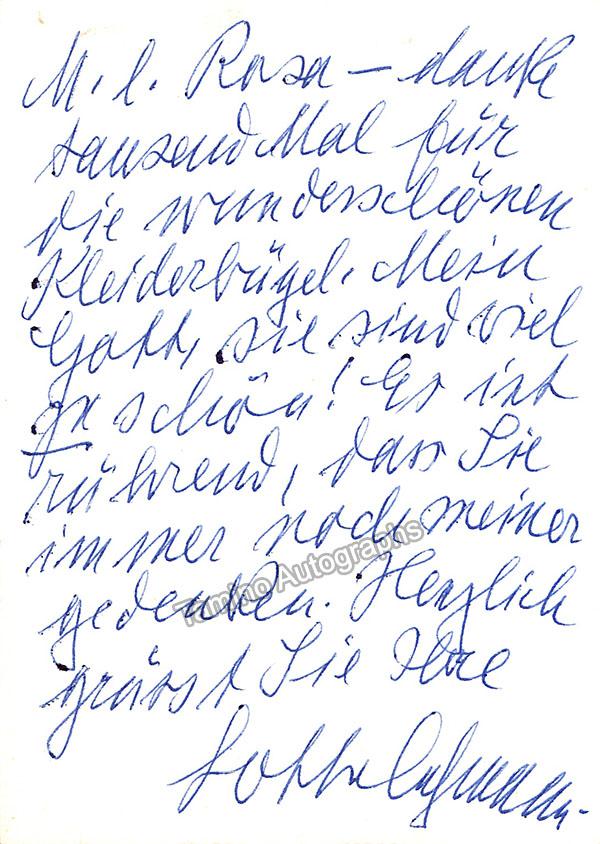 M. l. Rosa – danke
tausend Mal für
die wunderschönen
Kleiderbügel. Mein
Gott, sie sind viel
zu schön! Es ist
rührend, dass Sie
immer noch meiner
gedenken. Herzlich
grüsst Sie Ihre
Lotte Lehmann
Tamino Autographs